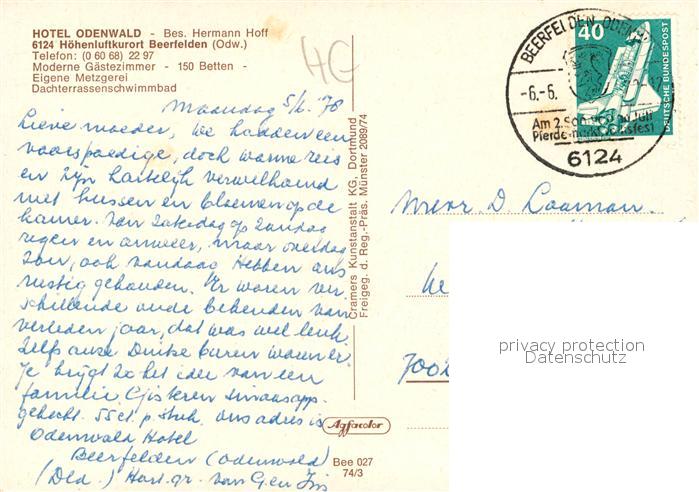 HOTEL ODENWALD - Bes. Hermann Hoff
6124 Höhenluftkurort Beerfelden (Odw.)
Telefon: (0 60 68) 22 97
Moderne Gästezimmer - 150 Betten -
Eigene Metzgerei
Dachterrassenschwimmbad
HG
Maandag 5/6 '78
Lieve moeder, we hadden een
voorspoedige, doch warme reis
en zijn hartelijk verwelkomd
met kussen en bloemen op de
kamer. Van zaterdag op zondag
regen en onweer, maar overdag
zon, ook vandaag. Hebben ons
rustig gehouden. Er waren ver
schillende oude bekenden van
verleden jaar, dat was wel leuk.
Zelfs onze buren waren er.
Je krijgt 2x het idee van een
familie. Gisteren sinaasapp.
gekocht. 55ct. p. stuk. Ons adres is
Odenwald Hotel
Beerfelden (Odenwald)
(Dld.) Hart. gr. van G en
Cramers Kunstanstalt KG, Dortmund
Freigeg. d. Reg.-Präs. Münster 2089/74
Agfacolor
Bee 027
74/3
BEERFELDEN, ODENW
-6.-6.
Am 2. Sonntag im Juli
Pferdemarkt Volksfest
6124
40
DEUTSCHE BUNDESPOST
Mevr D Laaman
7002
privacy protection
Datenschutz